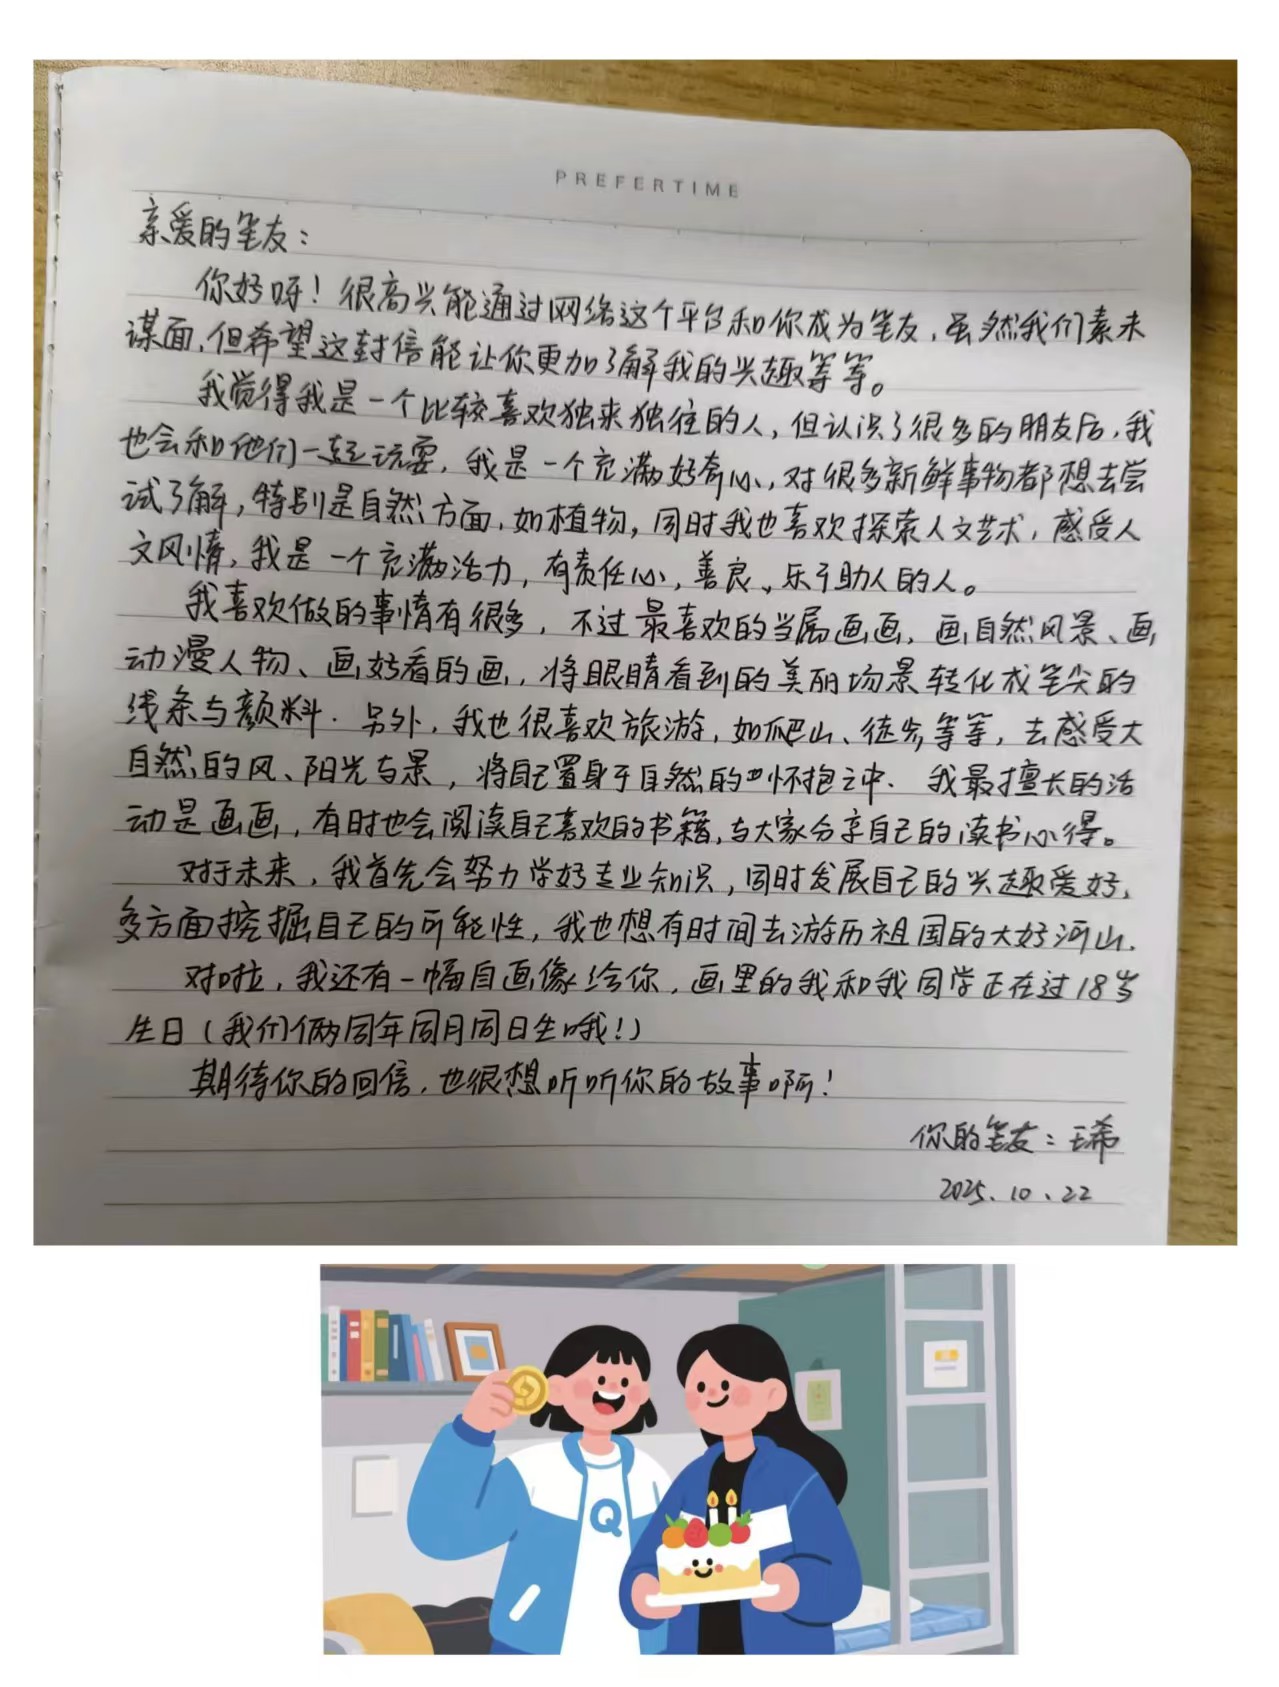 PREFERTIME
亲爱的笔友：
你好呀！很高兴能通过网络这个平台和你成为笔友，虽然我们素未
谋面，但希望这封信能让你更加了解我的兴趣等等。
我觉得我是一个比较喜欢独来独往的人，但认识了很多的朋友后，我
也会和他们一起玩耍，我是一个充满好奇心，对很多新鲜事物都想去尝
试了解，特别是自然方面，如植物，同时我也喜欢探索人文艺术，感受人
文风情，我是一个充满活力，有责任心，善良、乐于助人的人。
我喜欢做的事情有很多，不过最喜欢的当属画画，画自然风景、画
动漫人物、画好看的画，将眼睛看到的美丽场景转化成笔尖的
线条与颜料．另外，我也很喜欢旅游，如爬山、徒步等等，去感受大
自然的风、阳光与景，将自己置身于自然的怀抱之中．我最擅长的活
动是画画，有时也会阅读自己喜欢的书籍，与大家分享自己的读书心得。
对于未来，我首先会努力学好专业知识，同时发展自己的兴趣爱好，
多方面挖掘自己的可能性，我也想有时间去游历祖国的大好河山．
对啦，我还有一幅自画像给你，画里的我和我同学正在过18岁
生日（我们俩同年同月同日生哦！）
期待你的回信，也很想听听你的故事啊！
你的笔友：王希
2025.10.22
Q